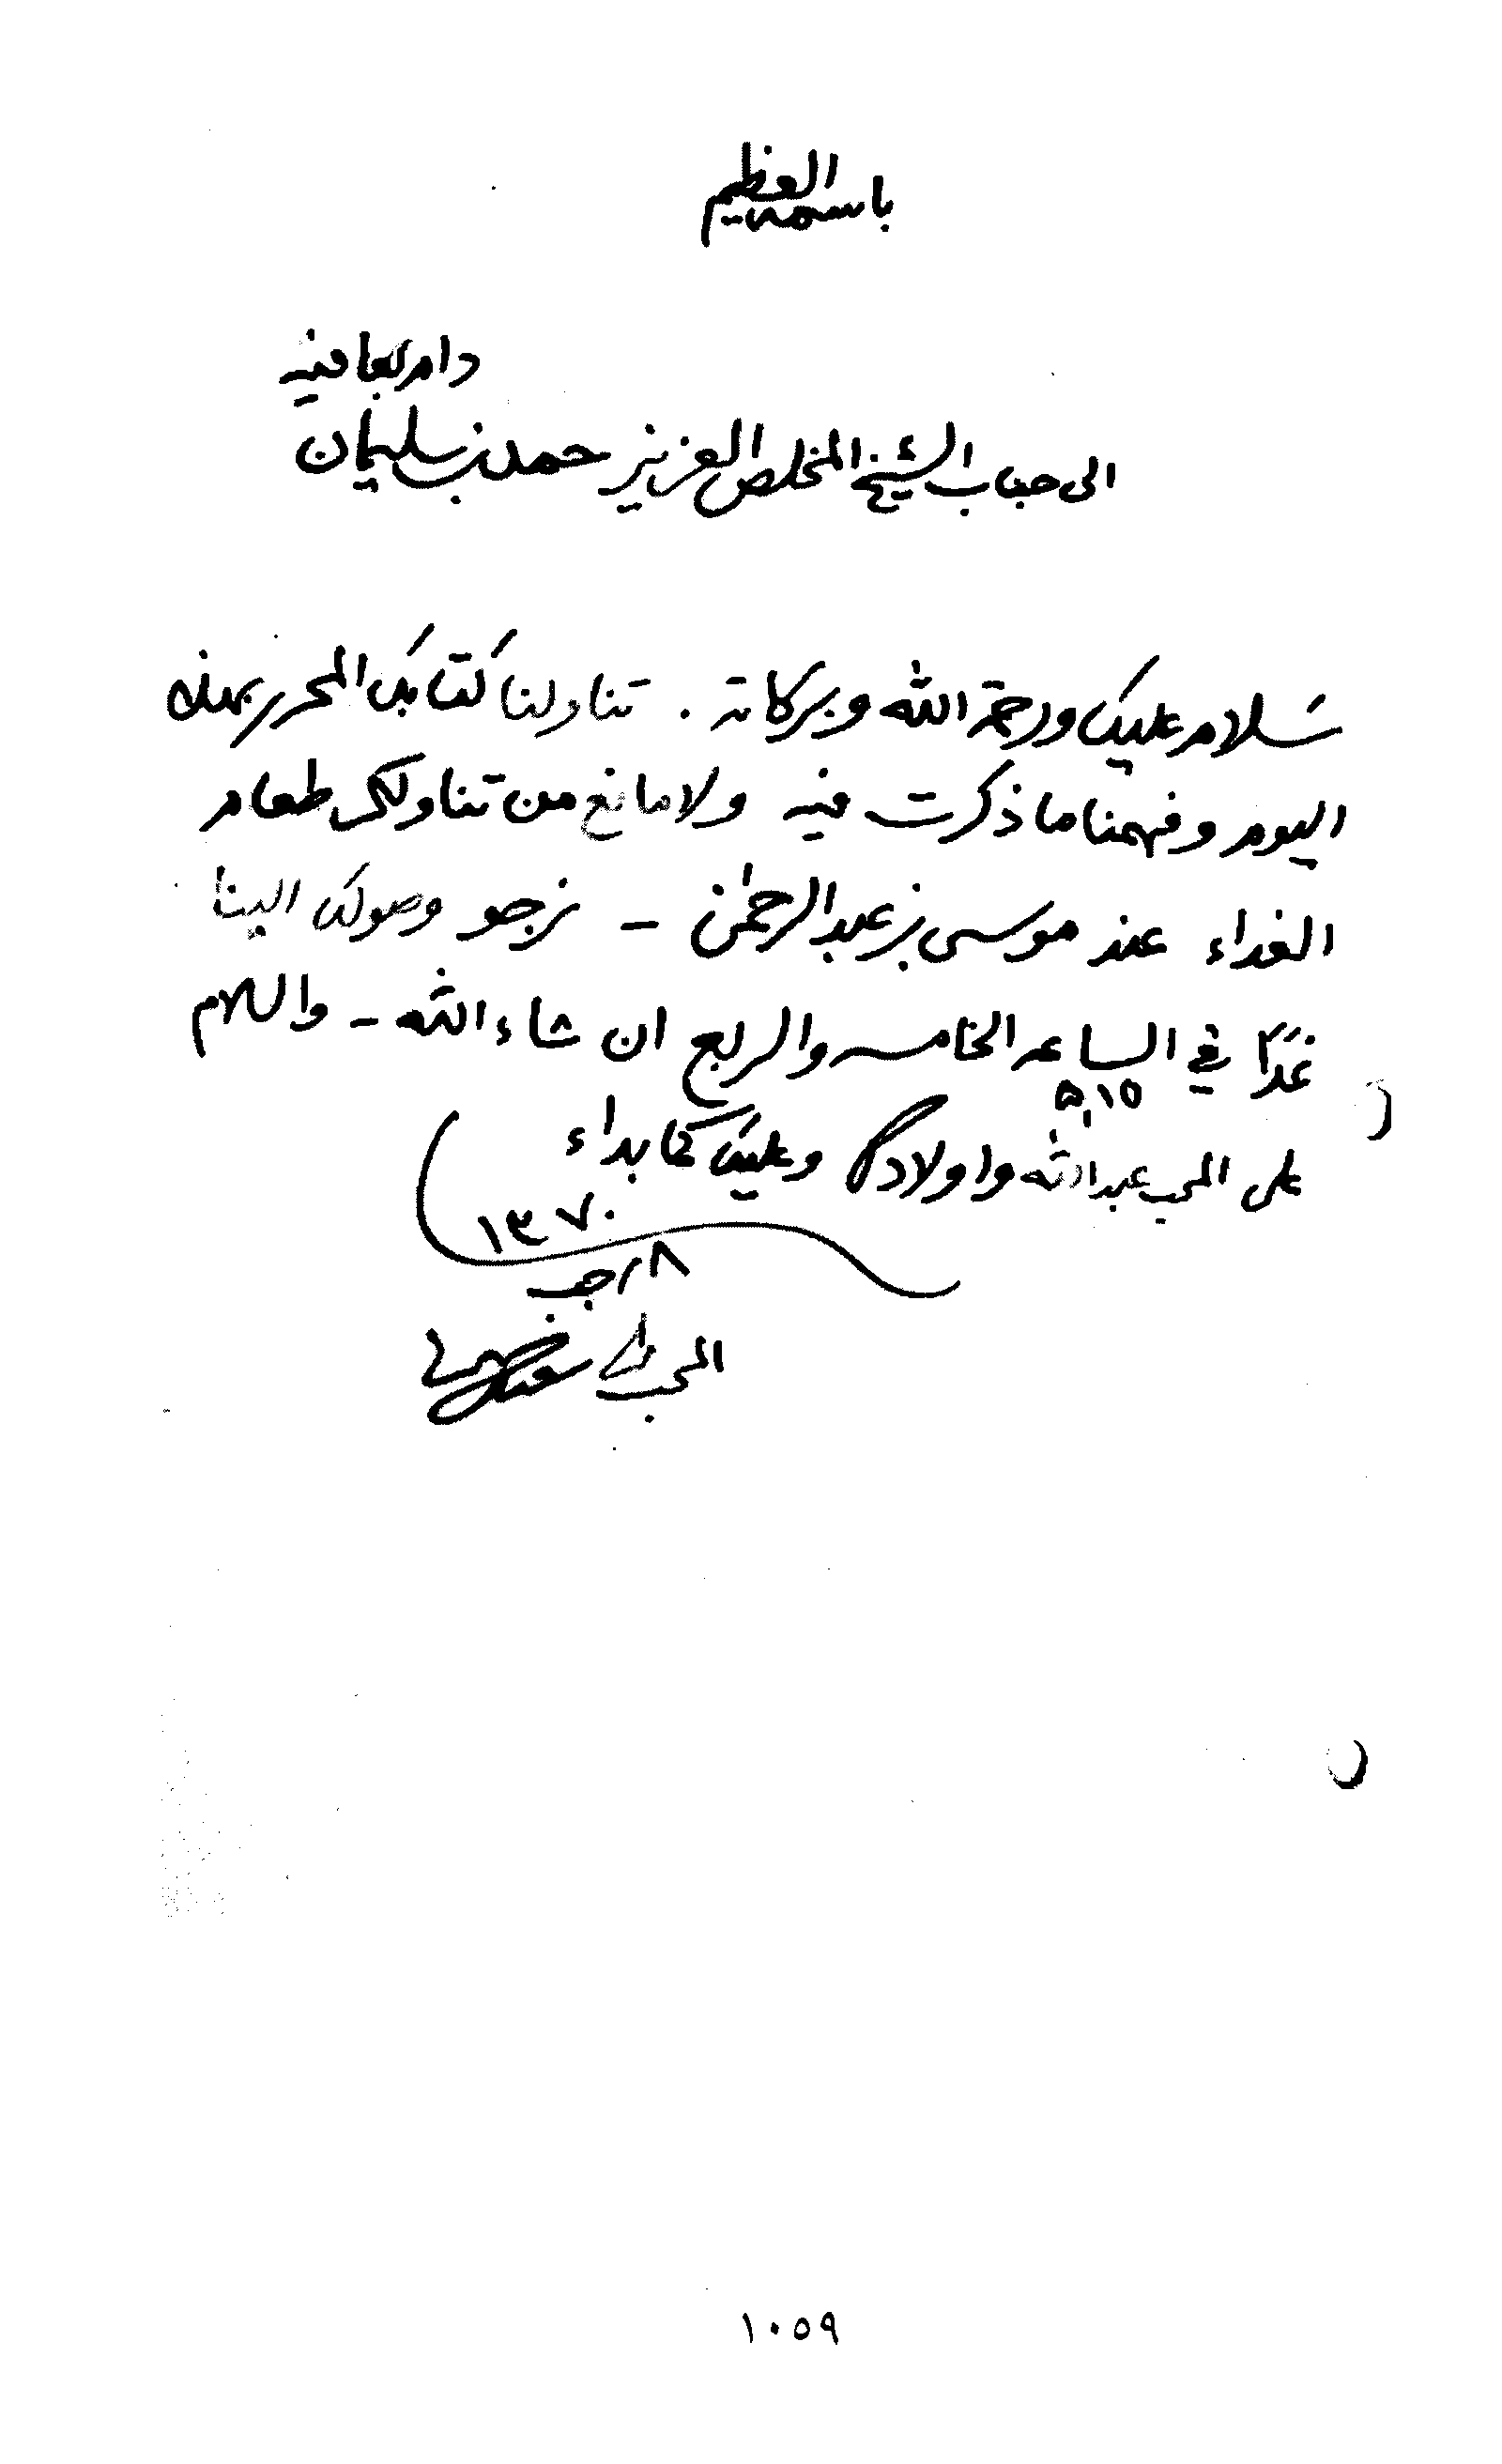 باسمه العظيم
دام بالعافيه
الى جناب الشيخ المخلص العزيز حمد بن سليمان
سلام عليك ورحمة الله وبركاته . تناولنا كتابك المحرر بهذه
اليوم وفهمنا ما ذكرت فيه ولا مانع من تناولك طعام
الغداء عند موسى بن عبدالرحمن - نرجو وصولك الينا
غدًا في الساعه الخامسه والربع ان شاء الله - والسلام
٥,١٥
على المحب عبدالله واولادك وعليك كما بداء
١٣٧٠
٨ رجب
المحب
١٠٥٩